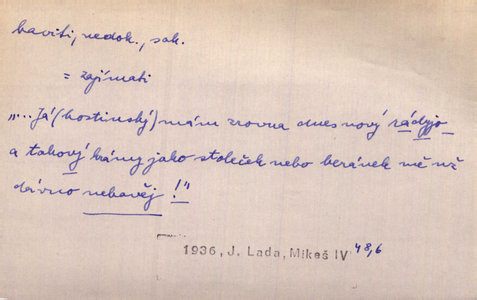 baviti, nedok., sak.
= zajímati
„... Já (hostinský) mám zrovna dnes nový rádyjo
a takový krámy jako stoleček nebo beránek mě už
dávno nebavěj!"
1936, J. Lada, Mikeš IV 48,6